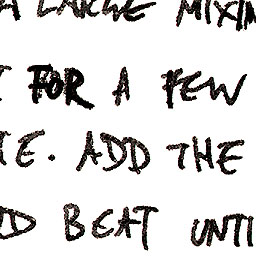 A LARGE MIXIN
FOR A FEW
E. ADD THE
D BEAT UNTI